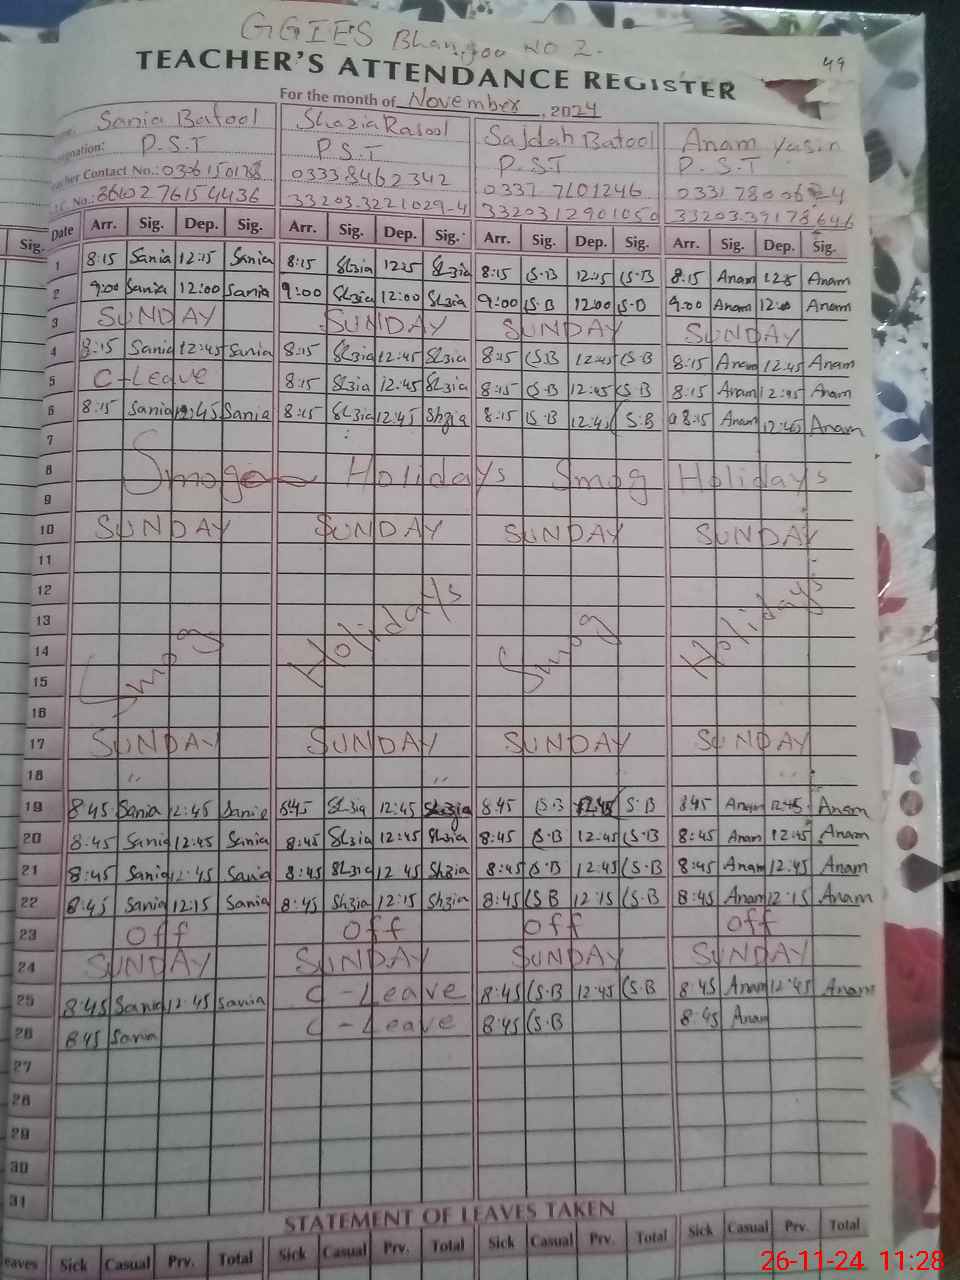 GGIES Bhangoo NO 2.
49
TEACHER'S ATTENDANCE REGISTER
For the month of November, 2024
Sania Batool Shazia Rasool Sajdah Batool Anam Yasin
Designation: P.S.T P.S.T P.S.T P.S.T
Teacher Contact No.: 03338462342 0337 7201246
No.: 33203.3221029-4 3320312901050
Sig. Date Arr. Sig. Dep. Sig. Arr. Sig. Dep. Sig. Arr. Sig. Dep. Sig. Arr. Sig. Dep. Sig.
1 8:15 Sania 12:15 Sania 8:15 Sh3ia 1215 Sh3ia 8:15 (S.B 12:15 (S.B 8:15 Anam Anam
2 9:00 Sania 12:00 Sania 9:00 Sh3ia 12:00 Sh3ia 9:00 (S.B 12:00 (S.B 9:00 Anam 12:00 Anam
3 SUNDAY SUNDAY SUNDAY SUNDAY
4 8:15 Sania 12:45 Sania 8:15 Sh3ia 12:45 Sh3ia 8:15 (S.B 12:45 (S.B 8:15 Anam 12:45 Anam
5 C-Leave 8:15 Sh3ia 12:45 Sh3ia 8:15 (S.B 12:45 (S.B 8:15 Anam 12:45 Anam
6 8:15 Sania 12:45 Sania 8:15 Sh3ia 12:45 Sh3ia 8:15 (S.B 12:45 (S.B 8:15 Anam 12:45 Anam
7
8 Smog Holidays Smog Holidays
9
10 SUNDAY SUNDAY SUNDAY SUNDAY
11
12
13
14 Smog Holidays Smog Holidays
15
16
17 SUNDAY SUNDAY SUNDAY SUNDAY
18 " " "
19 8 45 Sania 12:45 Sania 845 Sh3ia 12:45 Sh3ia 8:45 (S.B 12:45 S.B 845 Anam 12:45 Anam
20 8:45 Sania 12:45 Sania 8:45 Sh3ia 12:45 Sh3ia 8:45 (S.B 12:45 (S.B 8:45 Anam 12:45 Anam
21 8:45 Sania 12:45 Sania 8:45 Sh3ia 12 45 Sh3ia 8:45 (S.B 12:45 (S.B 8:45 Anam 12:45 Anam
22 8:45 Sania 12:15 Sania 8:45 Sh3ia 12:15 Sh3ia 8:45 (S B 12:15 (S.B 8:45 Anam 12:15 Anam
23 Off Off Off Off
24 SUNDAY SUNDAY SUNDAY SUNDAY
25 8:45 Sania 12:45 Sania C-Leave 8:45 (S.B 12:45 (S.B 8:45 Anam 12:45 Anam
26 8:45 Sania C-Leave 8:45 (S.B 8:45 Anam
27
28
29
30
31
STATEMENT OF LEAVES TAKEN
eaves Sick Casual Prv. Total Sick Casual Prv. Total Sick Casual Prv. Total Sick Casual Prv. Total
26-11-24 11:28